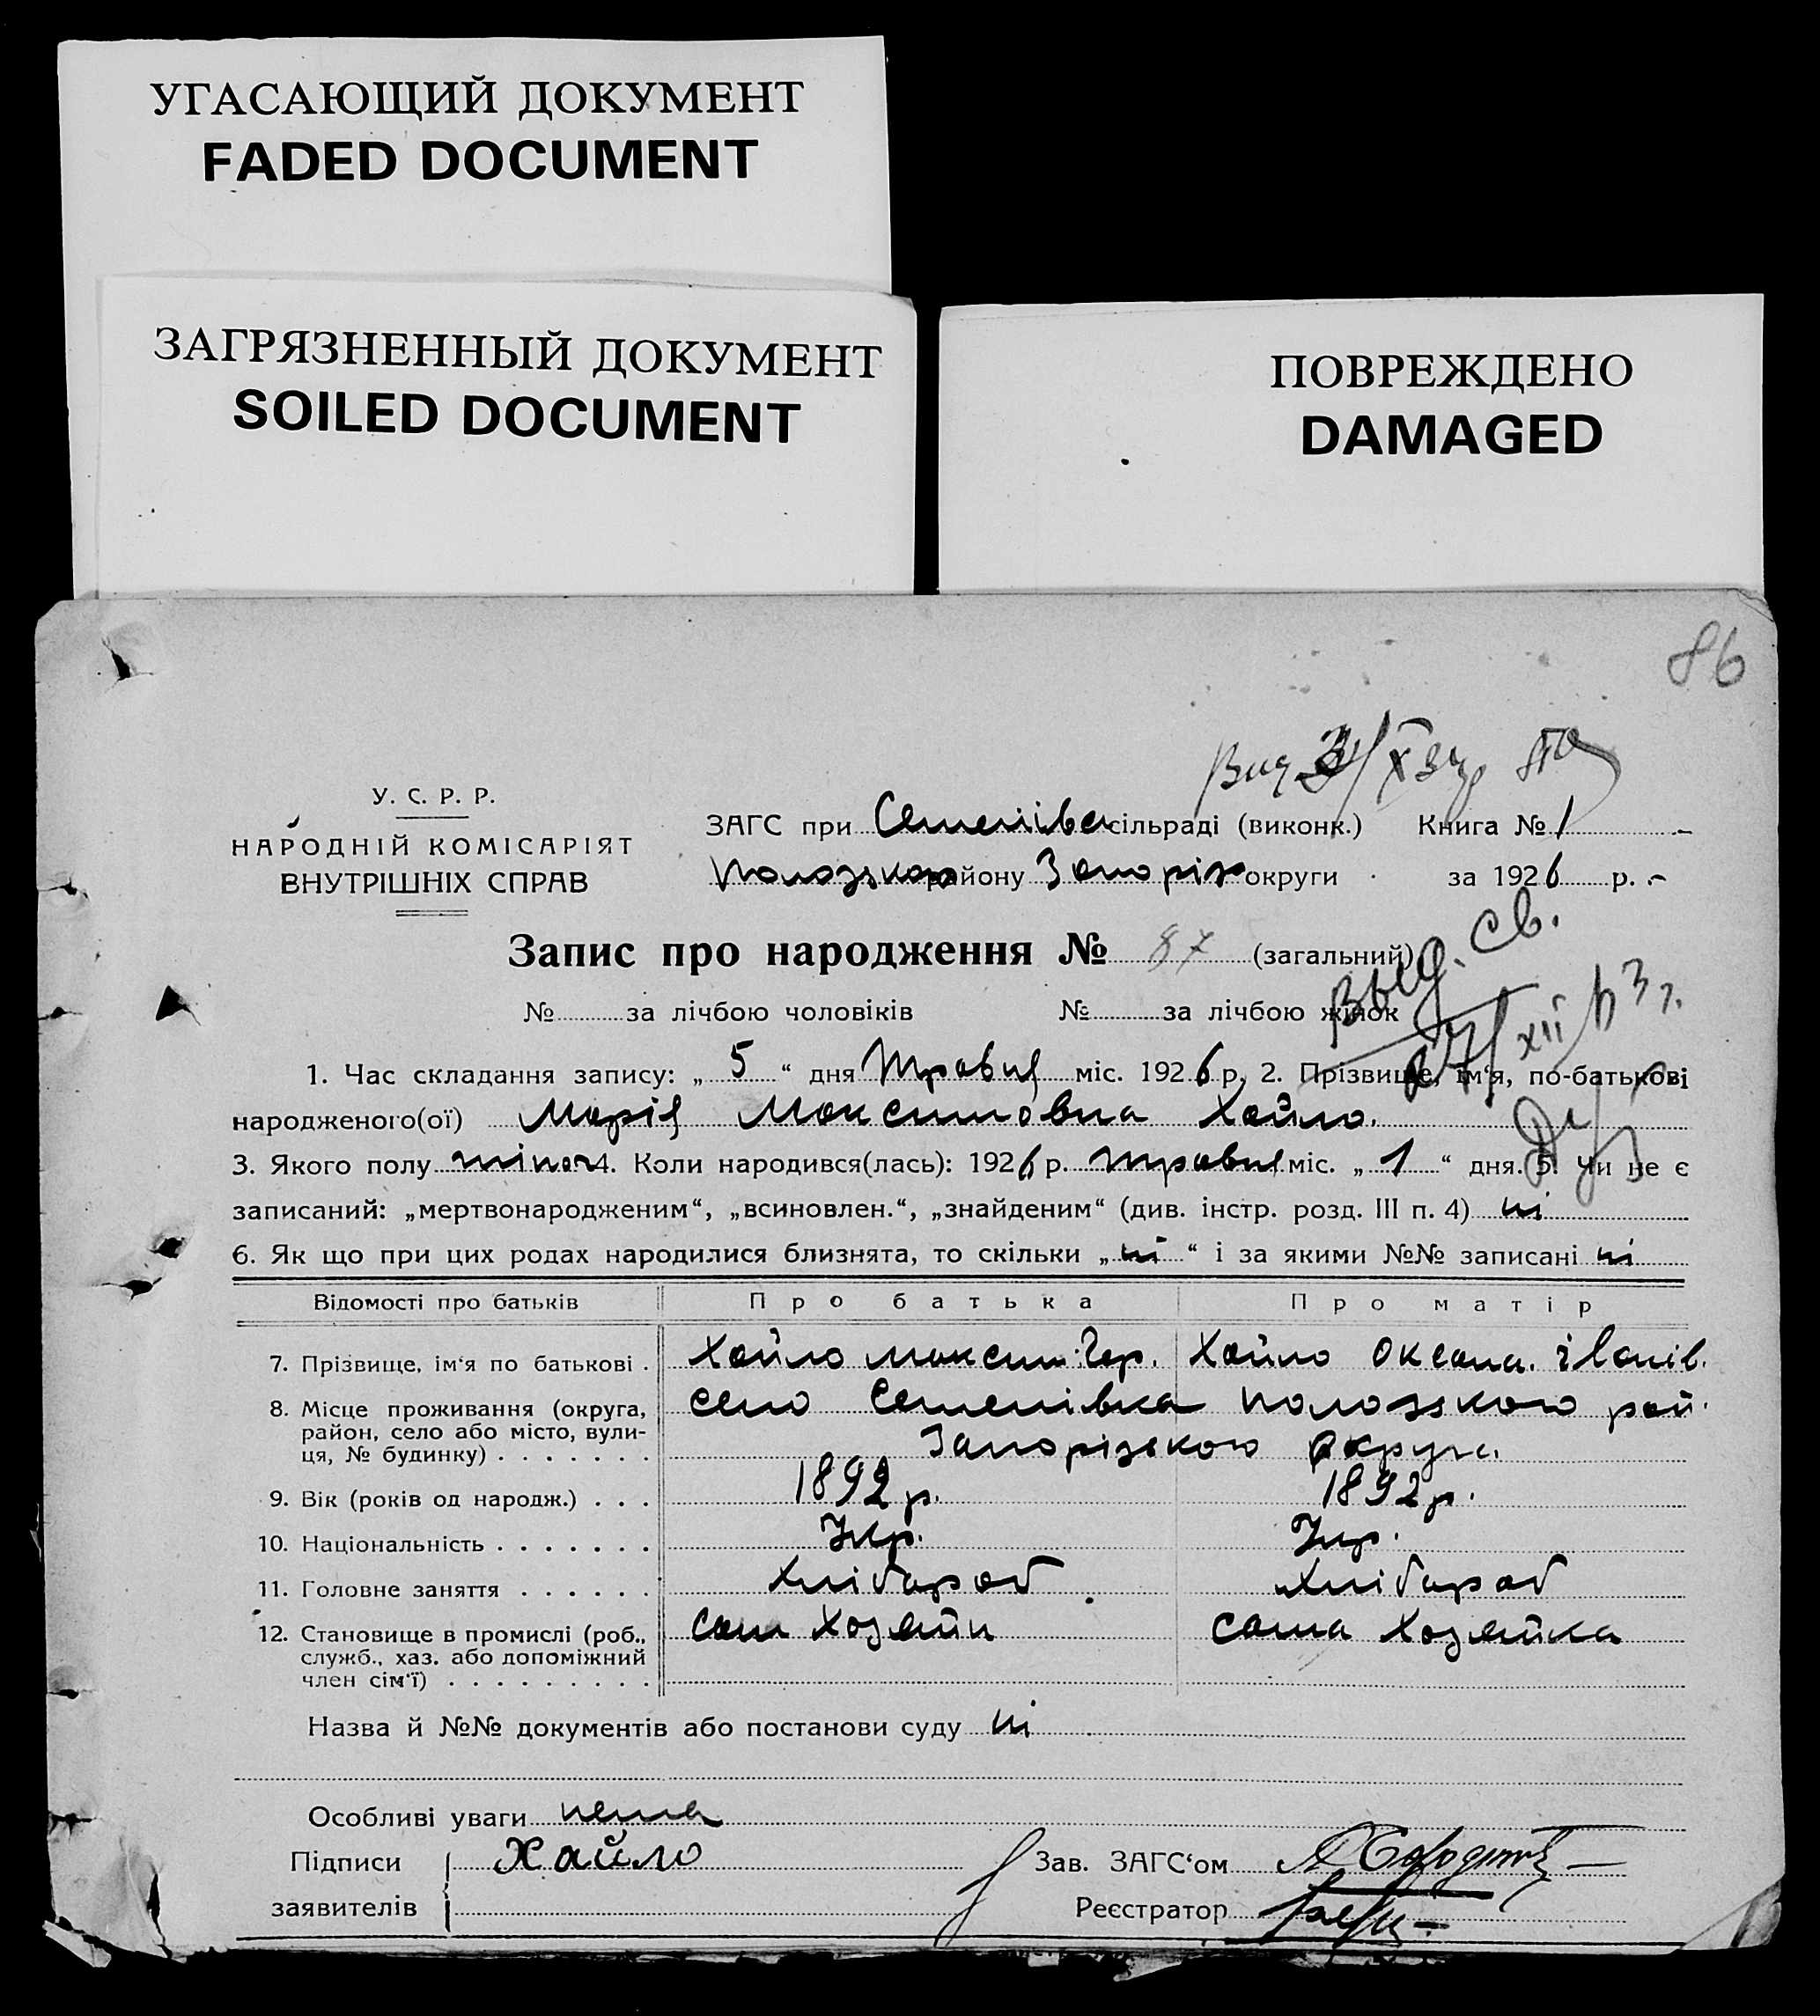 УГАСАЮЩИЙ ДОКУМЕНТ
FADED DOCUMENT
ЗАГРЯЗНЕННЫЙ ДОКУМЕНТ
SOILED DOCUMENT
ПОВРЕЖДЕНО
DAMAGED
86
У. С. Р. Р.
НАРОДНІЙ КОМІСАРІЯТ
ВНУТРІШНІХ СПРАВ
ЗАГС при Семенівсь сільраді (виконк.) Книга № 1
Пологзького району Запоріз округи за 1926 р.
Запис про народження № 87 (загальний)
Выд. св.
№ за лічбою чоловіків № за лічбою жінок
27/XII
1. Час складання запису: „ 5 “ дня Травня міс. 1926 р. 2. Прізвище, ім‘я, по-батькові
народженого(ої) Марія Максимовна Хайло.
3. Якого полу жіноч 4. Коли народився(лась): 1926 р. травня міс. „ 1 “ дня. 5. Чи не є
записаний: „мертвонародженим“, „всиновлен.“, „знайденим“ (див. інстр. розд. III п. 4) ні
6. Як що при цих родах народилися близнята, то скільки „ ні “ і за якими №№ записані ні
Відомості про батьків Про батька Про матір
7. Прізвище, ім‘я по батькові . Хайло Максим Гер. Хайло Оксана. іванів.
8. Місце проживання (округа, район, село або місто, вулиця, № будинку) село Семенівка Пологзького рай.
Запорізького округи.
9. Вік (років од народж.) . . . 1892 р. 1892 р.
10. Національність Укр. Укр.
11. Головне заняття Хлібароб Хлібароб
12. Становище в промислі (роб., служб., хаз. або допоміжний член сім‘ї) сам Хозяйн сама Хозяйка
Назва й №№ документів або постанови суду ні
Особливі уваги нема
Підписи заявителів Хайло
Зав. ЗАГС‘ом
Реєстратор